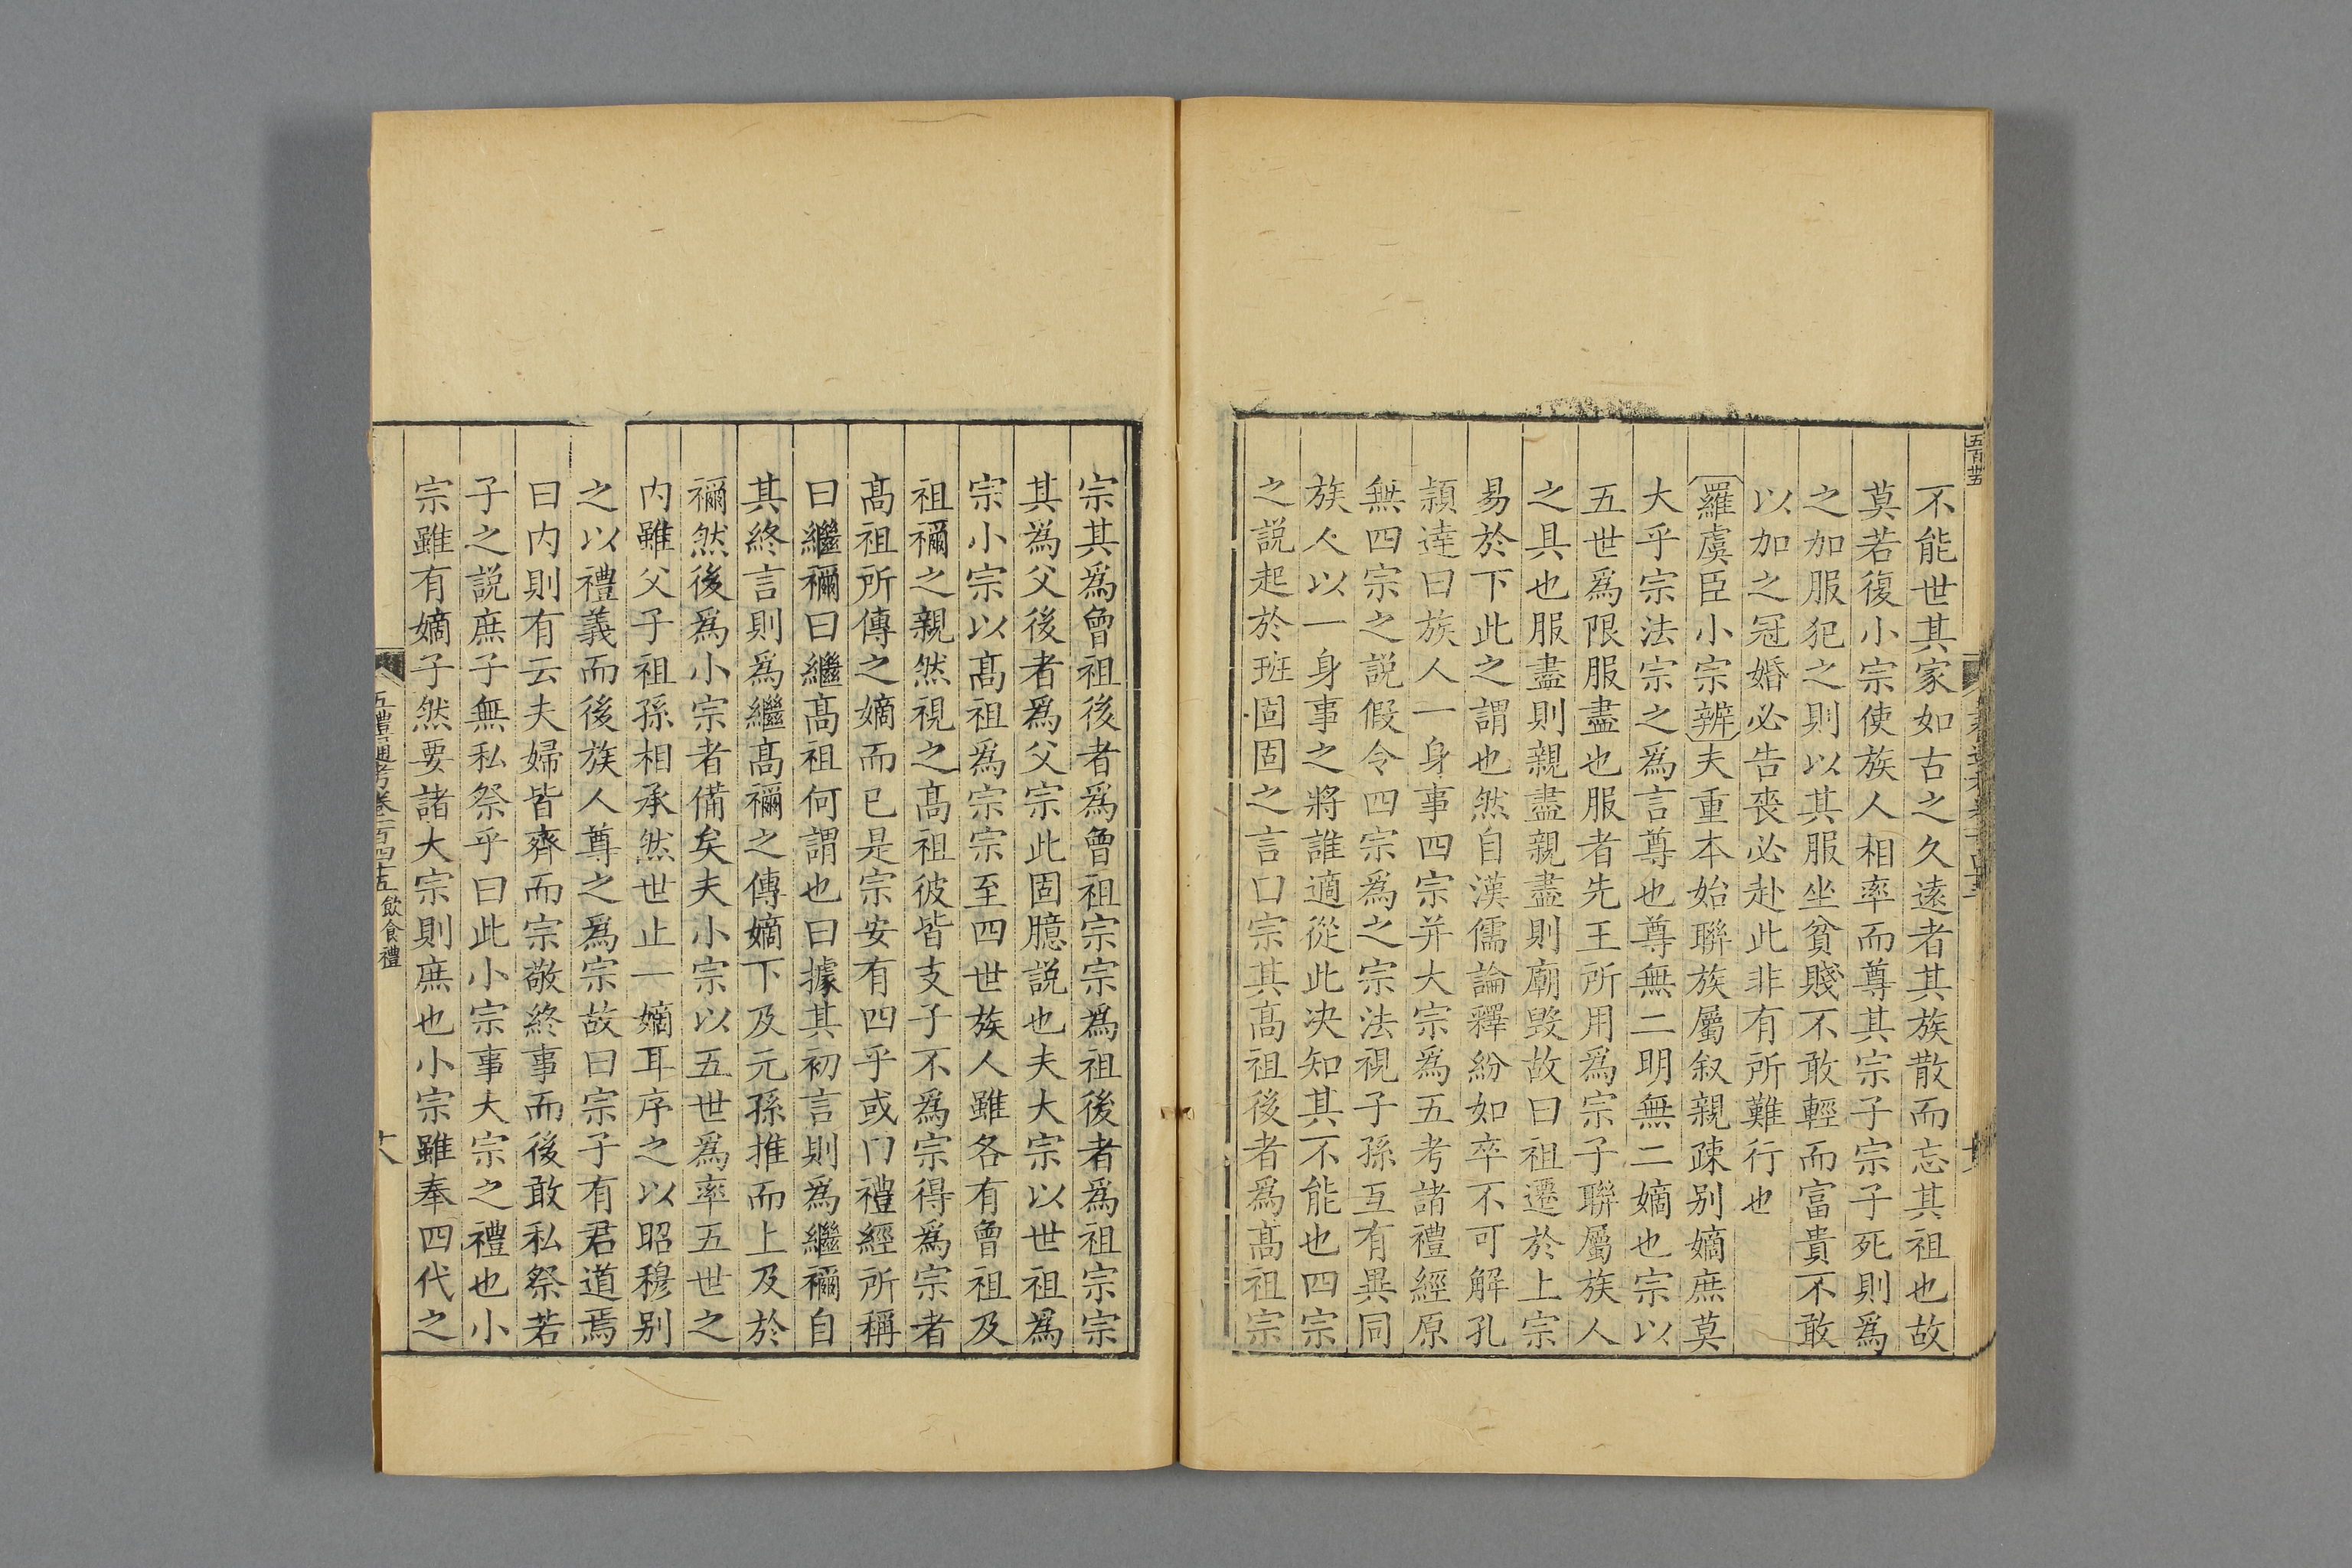 五百廿五
不能世其家如古之久遠者其族散而忘其祖也故
莫若復小宗使族人相率而尊其宗子宗子死則爲
之加服犯之則以其服坐貧賤不敢輕而富貴不敢
以加之冠婚必告喪必赴此非有所難行也
羅虞臣小宗辨夫重本始聯族屬叙親疎别嫡庶莫
大乎宗法宗之爲言尊也尊無二明無二嫡也宗以
五世爲限服盡也服者先王所用爲宗子聯屬族人
之具也服盡則親盡親盡則廟毁故曰祖遷於上宗
易於下此之謂也然自漢儒論釋紛如卒不可解孔
頴逹曰族人一身事四宗并大宗爲五考諸禮經原
無四宗之説假令四宗爲之宗法視子孫互有異同
族人以一身事之將誰適從此决知其不能也四宗
之説起於班固固之言曰宗其髙祖後者爲髙祖宗
宗其爲曾祖後者爲曾祖宗宗爲祖後者爲祖宗宗
其爲父後者爲父宗此固臆説也夫大宗以世祖爲
宗小宗以髙祖爲宗宗至四世族人雖各有曾祖及
祖禰之親然視之髙祖彼皆支子不爲宗得爲宗者
髙祖所傳之嫡而已是宗安有四乎或門禮經所稱
曰繼禰曰繼髙祖何謂也曰據其初言則爲繼禰自
其終言則爲繼髙禰之傳嫡下及元孫推而上及於
禰然後爲小宗者備矣夫小宗以五世爲率五世之
内雖父子祖孫相承然世止一嫡耳序之以昭穆别
之以禮義而後族人尊之爲宗故曰宗子有君道焉
曰内則有云夫婦皆齊而宗敬終事而後敢私祭若
子之説庶子無私祭乎曰此小宗事大宗之禮也小
宗雖有嫡子然要諸大宗則庶也小宗雖奉四代之
五禮通考卷一百四十五 飲食禮